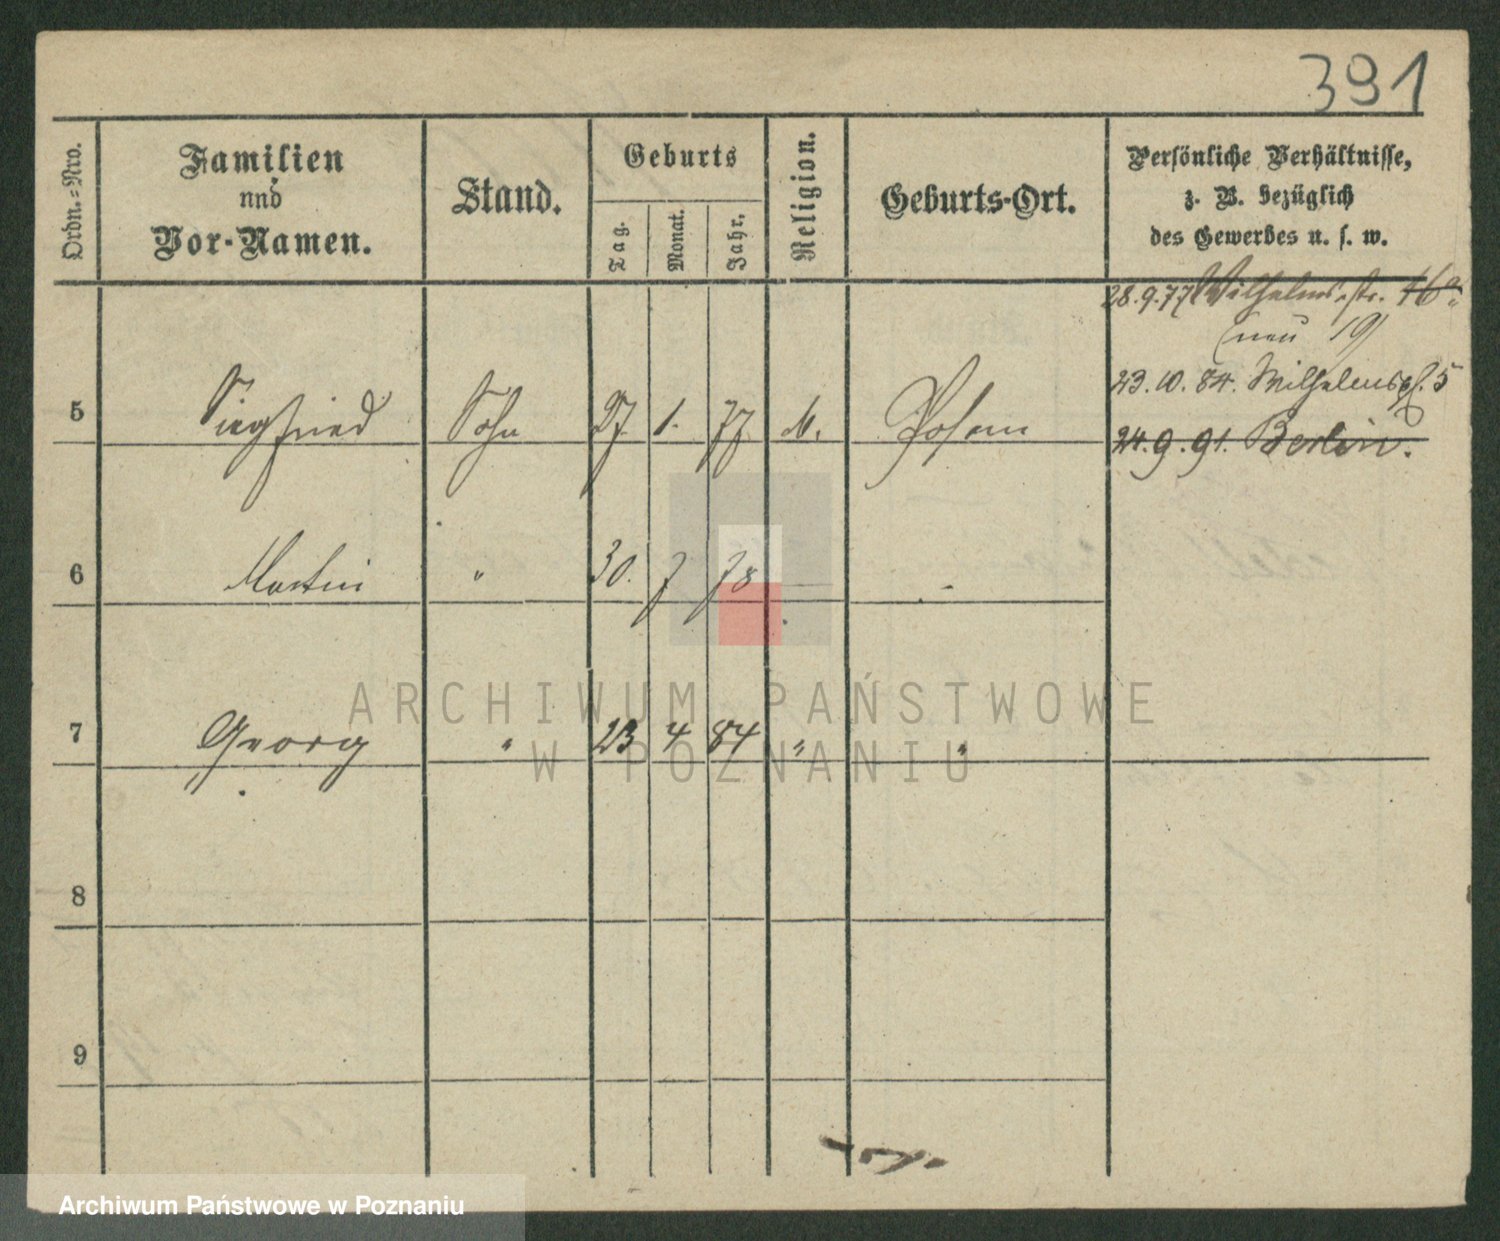 391
Ordn.=Nro.
Familien
und
Vor-Namen.
Stand.
Geburts
Tag.
Monat.
Jahr.
Religion.
Geburts-Ort.
Persönliche Verhältnisse,
z. B. bezüglich
des Gewerbes u. s. w.
28.9.77 Wilhelmsstr. 16a
(neu 19)
23.10.84. Wilhelmspl. 5
5 Siegfried Sohn 27. 1. 77 M. Posen 24.9.91. Berlin.
6 Martin " 30. 7 78
7 Georg " 23 4 84 " "
8
9
ARCHIWUM PAŃSTWOWE
W POZNANIU
Archiwum Państwowe w Poznaniu